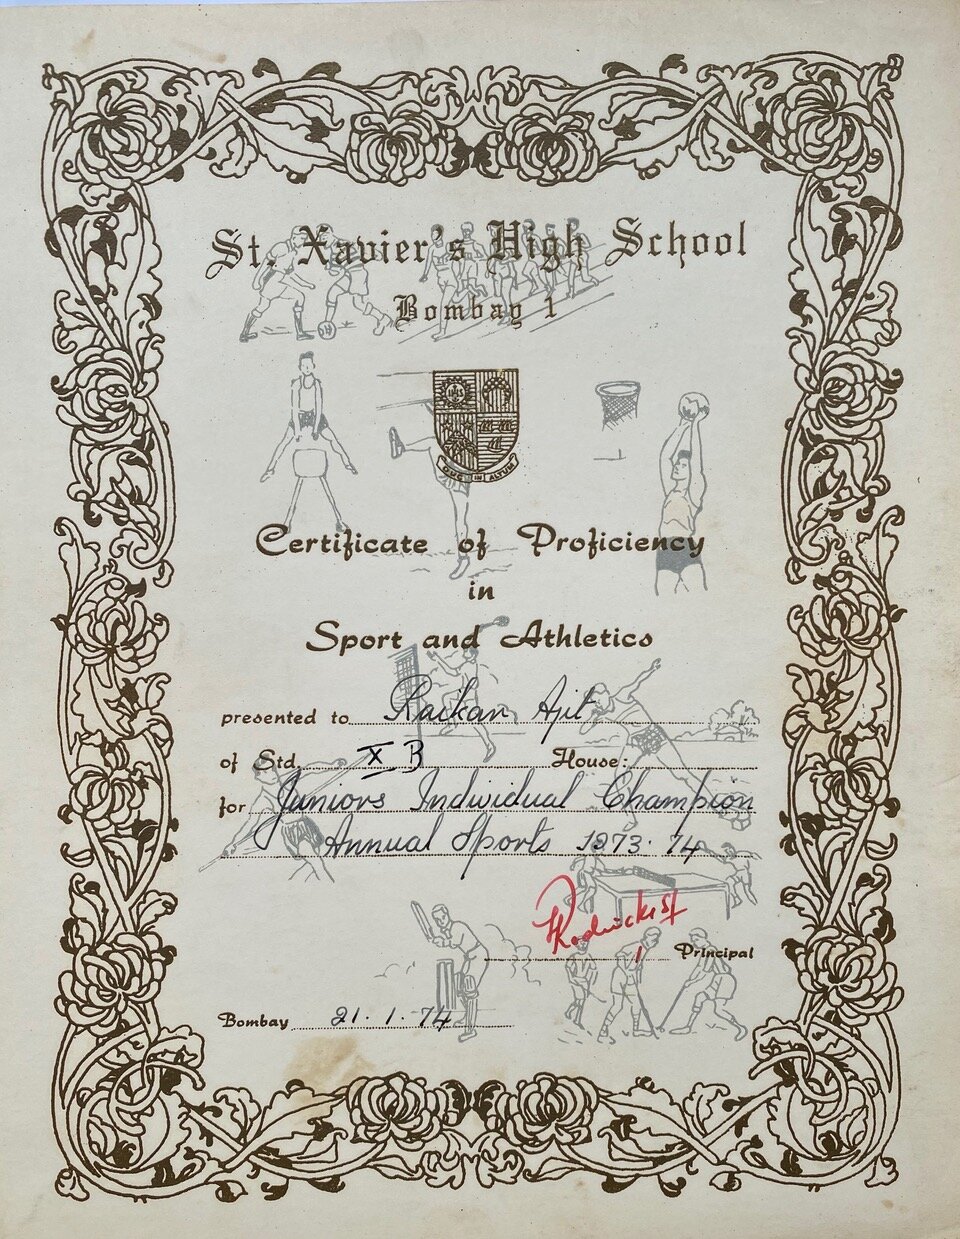 St. Xavier's High School
Bombay 1
IHS
DUC IN ALTUM
Certificate of Proficiency
in
Sport and Athletics
presented to Raikar Ajit
of Std. X B House:
for Juniors Individual Champion
Annual Sports 1973-74
Principal
Bombay 21.1.74